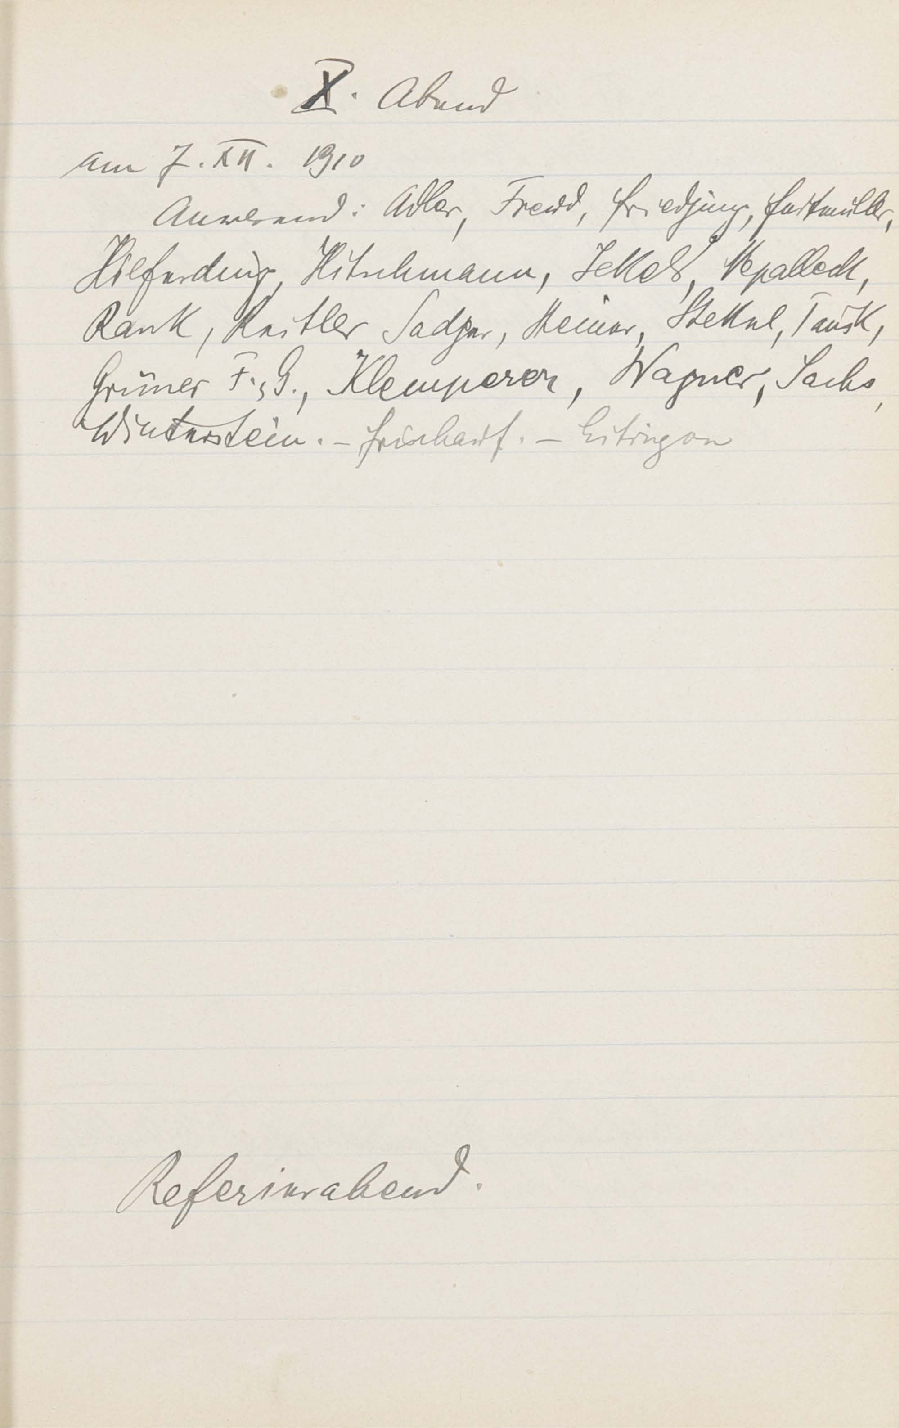 X. Abend
am 7. XII. 1910
Anwesend: Adler, Freud, Friedjung, Furtmüller,
Hilferding, Hitschmann, Jekels, Nepalleck,
Rank, Reitler Sadger, Steiner, Stekel, Tausk,
Grüner F., G., Klemperer, Wagner, Sachs,
Winterstein. – Frischauf. – Eitingon
Referierabend.